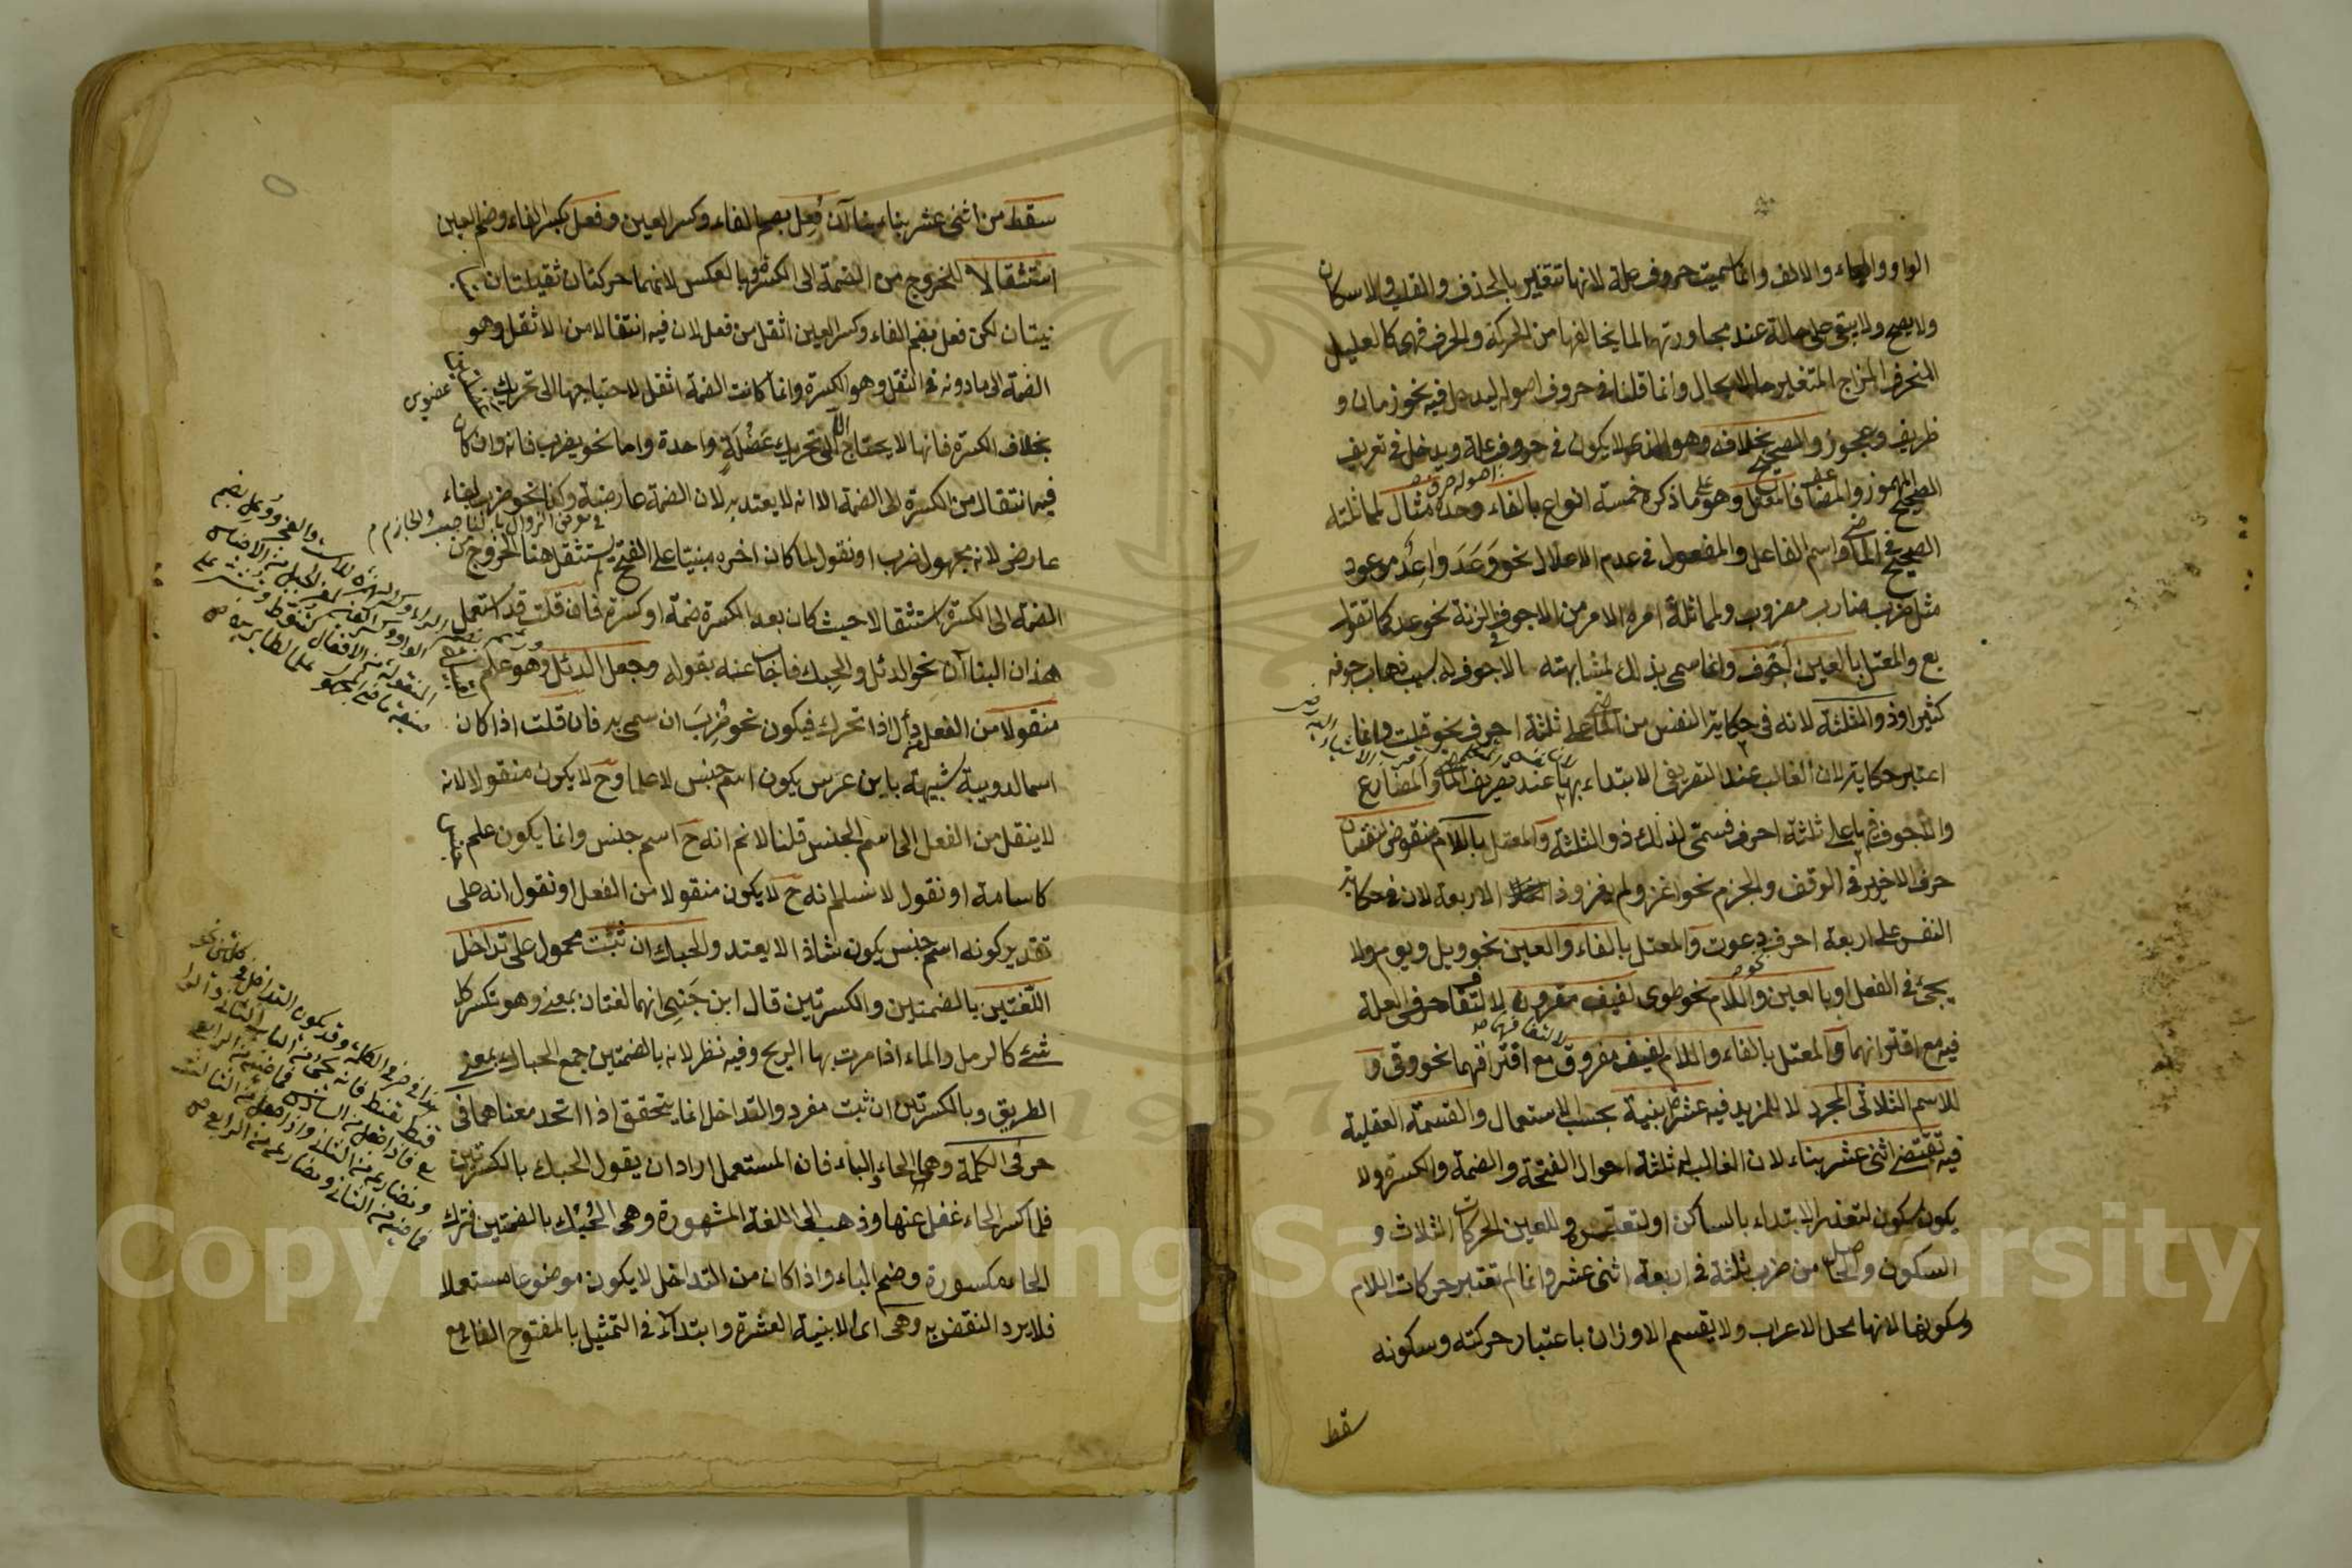 الواو والياء والالف وانما سميت حروف علة لانها تتغير بالحذف والقلب والاسكان
ولا يصح ولا يبقى على حالة عند مجاورتها لما يخالفها من الحركة والحرف فهي كالعليل
المنحرف المزاج المتغير حالا بحال وانما قلنا في حروف اصوله ليدخل فيه نحو زمان و
ظريف وعجوز والصحيح بخلافه وهو الذي لا يكون في حروف علة ويدخل في تعريف
الصحيح المهموز والمضاعف فالمعتل وهو على ما ذكره خمسة انواع بالفاء وحده مثال لمماثلته
الصحيح في الماضي واسم الفاعل والمفعول في عدم الاعلال نحو وَعَدَ وَاعِدٌ موعود
مثل ضرب ضارب مضروب ولمماثلة امره الامر من الاجوف في الزنة نحو عد كما تقول
بع والمعتل بالعين اجوف وانما سمي بذلك لمشابهته بالاجوف له بسبب ذهاب جوفه
كثيرا وذو الثلثة لانه في حكاية النفس من الماضي على ثلثة احرف نحو قلت وانما
اعتبر حكايته لان الغالب عند التصريفي الابتداء بها عند تصريف الماضي والمضارع
والاجوف فيها على ثلثة احرف فسمي لذلك ذو الثلثة والمعتل باللام منقوص لنقصان
حرف الاخير في الوقف والجزم نحو اغز ولم يغز وذا الاربعة لان في حكاية
النفس على اربعة احرف دعوت والمعتل بالفاء والعين نحو ويل ويوم ولا
يجئ في الفعل او بالعين واللام نحو طوى لفيف مقرون لالتفاف حرفي العلة
فيه مع اقترانهما والمعتل بالفاء واللام لفيف مفروق مع افتراقهما نحو وقى و
للاسم الثلاثي المجرد لا المزيد فيه عشرة ابنية بحسب الاستعمال والقسمة العقلية
فيه تقتضي اثنى عشر بناء لان الفاء له ثلثة احوال الفتحة والضمة والكسرة ولا
يكون سكون لتعذر الابتداء بالساكن او لتعسره وللعين الحركات الثلاث و
السكون والحاصل من ضرب ثلثة في اربعة اثنى عشر وانما لم تعتبر حركات اللام
وسكونها لانها محل الاعراب ولا يقسم الاوزان باعتبار حركته وسكونه
سقط
سقط من اثنى عشر بناء بناآن فُعِل بضم الفاء وكسر العين وفعل بكسر الفاء وضم العين
استثقالا للخروج من الضمة الى الكسرة وبالعكس لانهما حركتان ثقيلتان
نيتان لكن فعل بضم الفاء وكسر العين اثقل من فعل لان فيه انتقالا من الاثقل وهو
الضمة الى ما دونه في الثقل وهو الكسرة وانما كانت الضمة اثقل لاحتياجها الى تحريك
بخلاف الكسرة فانها لا يحتاج الا الى تحريك عَضْلَةٍ واحدة واما نحو يضرب فانه وان كان
فيه انتقال من الكسرة الى الضمة الا انه لا يعتد به لان الضمة عارضة وكذا نحو ضرب لبناء
في معرض الزوال بالناصب والجازم
عارض لانه مجهول ضرب او نقول لما كان اخره مبنيا على الفتح لم يستثقل هنا الخروج من
الضمة الى الكسرة استثقالا حيث كان بعد الكسرة ضمة او كسرة فان قلت قد استعمل
هذان البناآن نحو الدئل والحبك فاجاب عنه بقوله وجعل الدئل وهو علم
منقولا من الفعل دأل اذا تحرك فيكون نحو ضُرِبَ ان سمي به فان قلت اذا كان
اسما لدويبة شبيهة بابن عرس يكون اسم جنس لا علما وح لا يكون منقولا لانه
لا ينقل من الفعل الى اسم الجنس قلنا لا نم انه ح اسم جنس وانما يكون علم
كاسامة او نقول لا نسلم انه ح لا يكون منقولا من الفعل او نقول انه على
تقدير كونه اسم جنس يكون شاذا لا يعتد والحبك ان ثبت محمول على تداخل
اللغتين بالضمتين والكسرتين قال ابن جني انهما لغتان بمعنى وهو تكسر كل
شئ كالرمل والماء اذا مرت بها الريح وفيه نظر لانه بالضمتين جمع الحباك بمعنى
الطريق وبالكسرتين ان ثبت مفرد والتداخل انما يتحقق اذا اتحد معناهما في
حرفي الكلمة وهما الحاء والباء فان المستعمل اراد ان يقول الحبك بالكسرتين
فلما كسر الحاء غفل عنها وذهب الى اللغة المشهورة وهي الحُبُك بالضمتين فترك
الحاء مكسورة وضم الباء واذا كان من التداخل لا يكون موضوعا مستعملا
فلا يرد النقض به وهي اي الابنية العشرة وابتداء في التمثيل بالمفتوح الفاء مع
Copyright © King Saud University
1957